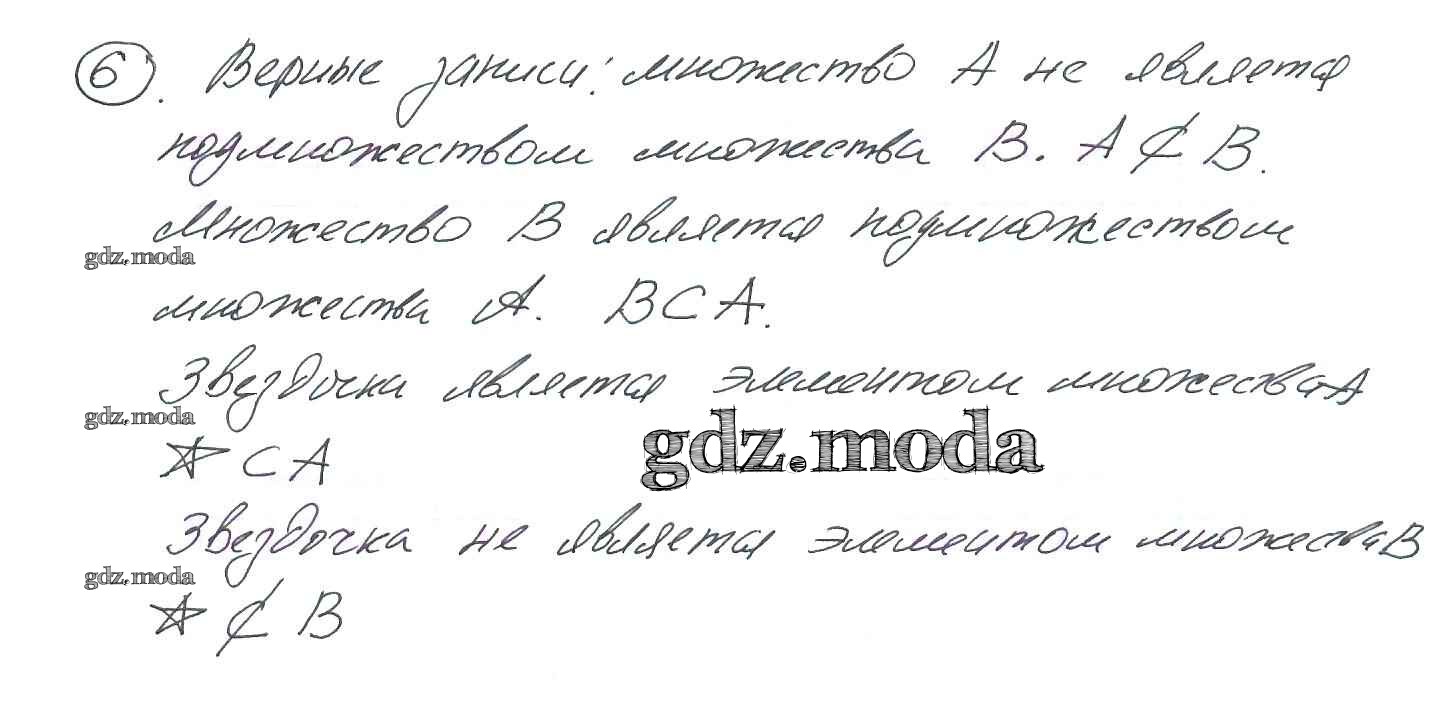 6. Верные записи: множество А не является
подмножеством множества В. А ⊄ В.
Множество В является подмножеством
gdz.moda
множества А. В ⊂ А.
Звездочка является элементом множества А
gdz.moda
gdz.moda
☆ ⊂ А
Звездочка не является элементом множества В
gdz.moda
☆ ⊄ В